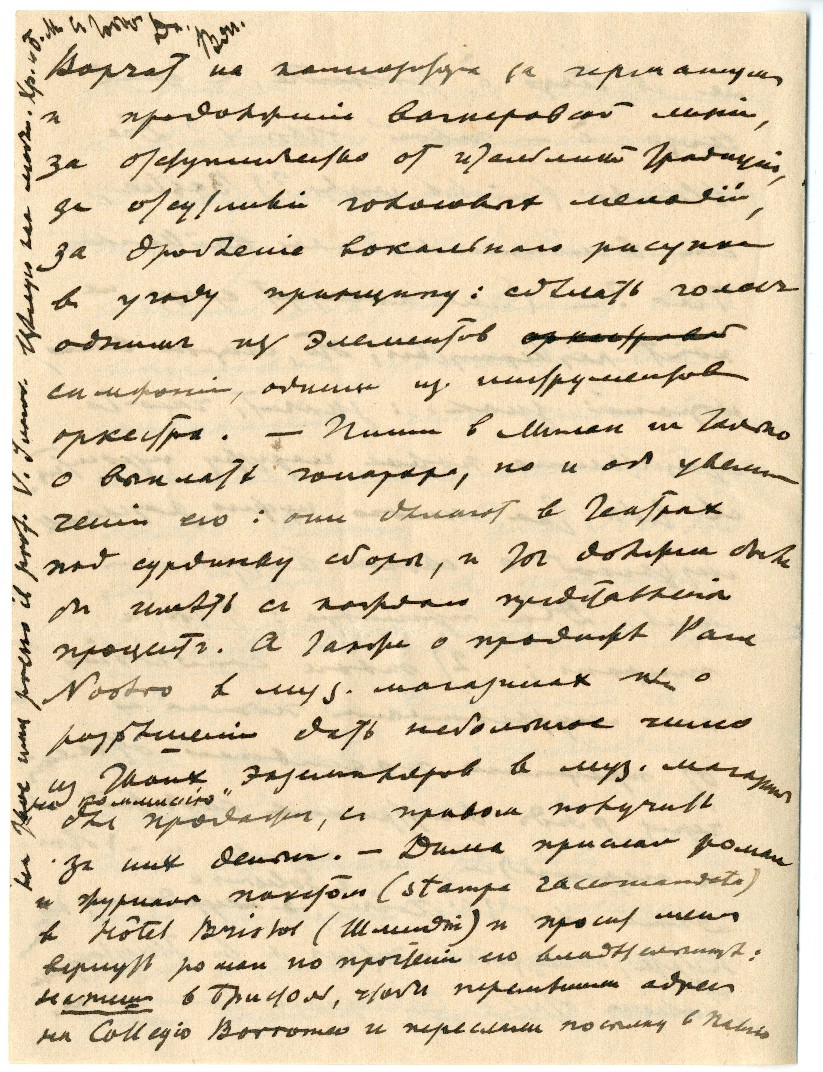 Ворчат на композитора за германизм
и продолжение вагнеровской линии,
за отступничество от итальянской традиции,
за отсутствие голосовых мелодий,
за дробление вокального рисунка
в угоду принципу: сделать голос
одним из элементов оркестровой
симфонии, одним из инструментов
оркестра. — Пиши в Милан не только
о выплате гонорара, но и об увели-
чении его: они делают в театрах
под сурдинку сборы, и ты должен был
бы иметь с каждого представления
процент. А также о продаже Pane
Nostro в муз. магазинах или о
разрешении дать небольшое число
из Твоих экземпляров в муз. магазины
„на коммиссию"
для продажи, с правом получить
за них деньги. — Дима прислал роман
и журнал пакетом (stampe raccomandate)
в Hôtel Bristol (Шмидт) и просит меня
вернуть роман по прочтении его владетельнице:
напиши в Бристоль, чтобы переменили адрес
на Collegio Borromeo и переслали посылку в Павию
il prof. V. Ivanov.